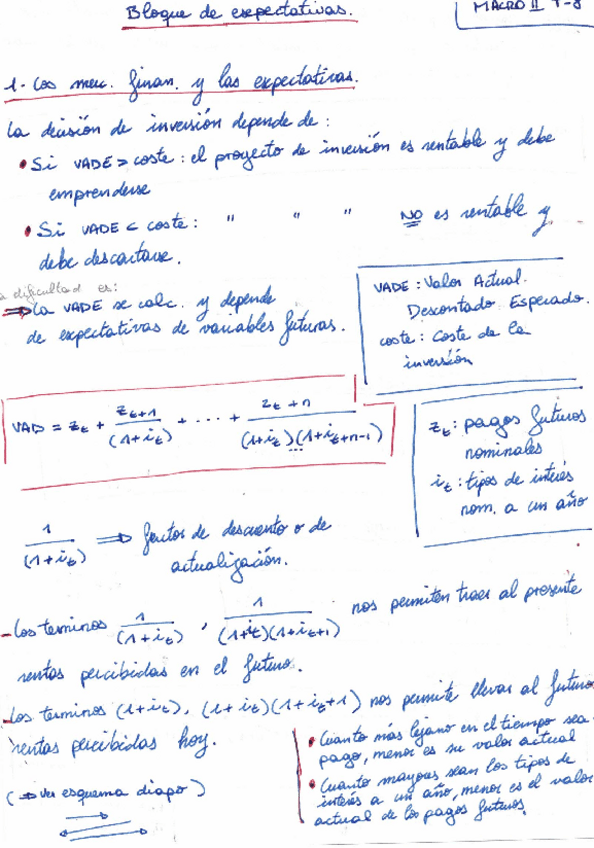 Bloque de expectativas.
MACRO II T-8
1- Los merc. finan. y las expectativas.
La decisión de inversión depende de:
• Si VADE > coste: el proyecto de inversión es rentable y debe
emprenderse
• Si VADE < coste: " " " NO es rentable y
debe descartarse.
a dificultad es:
⇒ La VADE se calc. y depende
de expectativas de variables futuras.
VADE: Valor Actual
Descontado Esperado.
coste: Coste de la
inversión
VAD = z_t + z_{t+1}/(1+i_t) + ... + z_{t+n}/((1+i_t)...(1+i_{t+n-1}))
z_t: pagos futuros
nominales
i_t: tipos de interés
nom. a un año
1/(1+i_t) ⇒ factor de descuento o de
actualización.
- Los terminos 1/(1+i_t), 1/((1+i_t)(1+i_{t+1})) nos permiten traer al presente
rentas percibidas en el futuro.
- Los terminos (1+i_t), (1+i_t)(1+i_{t+1}) nos permite llevar al futuro
rentas percibidas hoy.
(⇒ ver esquema diapo)
• Cuanto más lejano en el tiempo sea
pago, menor es su valor actual
• Cuanto mayores sean los tipos de
interés a un año, menor es el valor
actual de los pagos futuros.